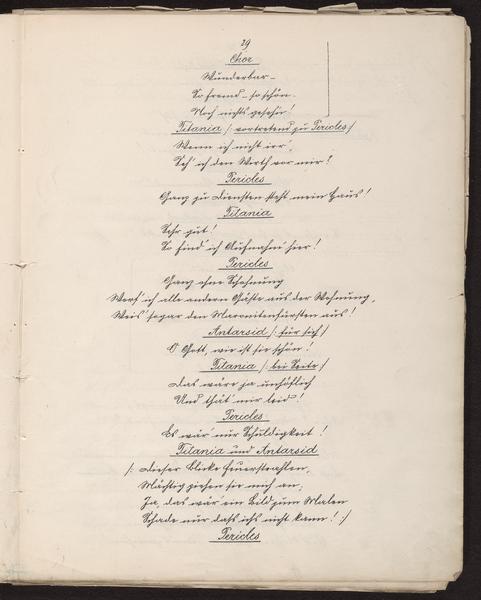 29
Chor
Wunderbar –
So fremd – so schön –
Noch nichts gesehn!
Titania /: vortretend zu Pericles :/
Wenn ich nicht irr',
Seh' ich den Wirth vor mir!
Pericles
Ganz zu Diensten steht mein Haus!
Titania
Sehr gut!
So find' ich Aufnahm' hier!
Pericles
Ganz ohne Schonung
Werf' ich alle andern Gäste aus der Wohnung,
Weis' sogar den Maronitenfürsten aus!
Antarsid /: für sich :/
O Gott, wie ist sie schön!
Titania /: bei Seite :/
Das wäre ja unhöflich
Und thät' mir leid!
Pericles
Es wär' nur Schuldigkeit!
Titania und Antarsid
/: Dieser Blicke Feuerstrahlen,
Mächtig ziehen sie mich an,
Ja, das wär' ein Bild zum Malen
Schade nur dass ichs nicht kann! :/
Pericles